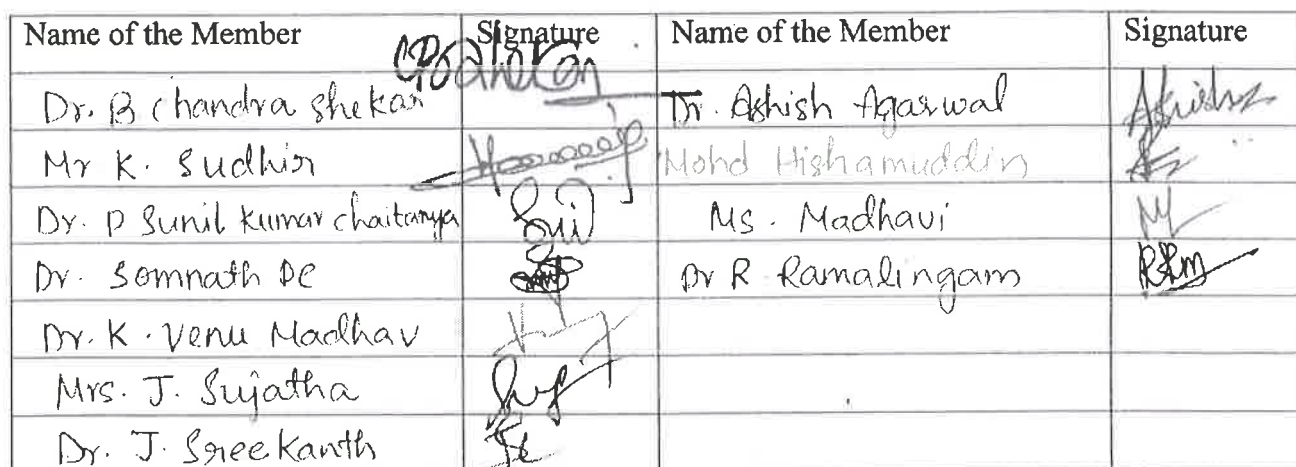 Name of the Member Signature Name of the Member Signature
Dr. B Chandra Shekar Dr. Ashish Agarwal Ashish
Mr K. Sudhir Mohd Hishamuddin
Dr. P Sunil Kumar Chaitanya Ms. Madhavi
Dr. Somnath De Dr R Ramalingam
Dr. K. Venu Madhav
Mrs. J. Sujatha
Dr. J. Sreekanth